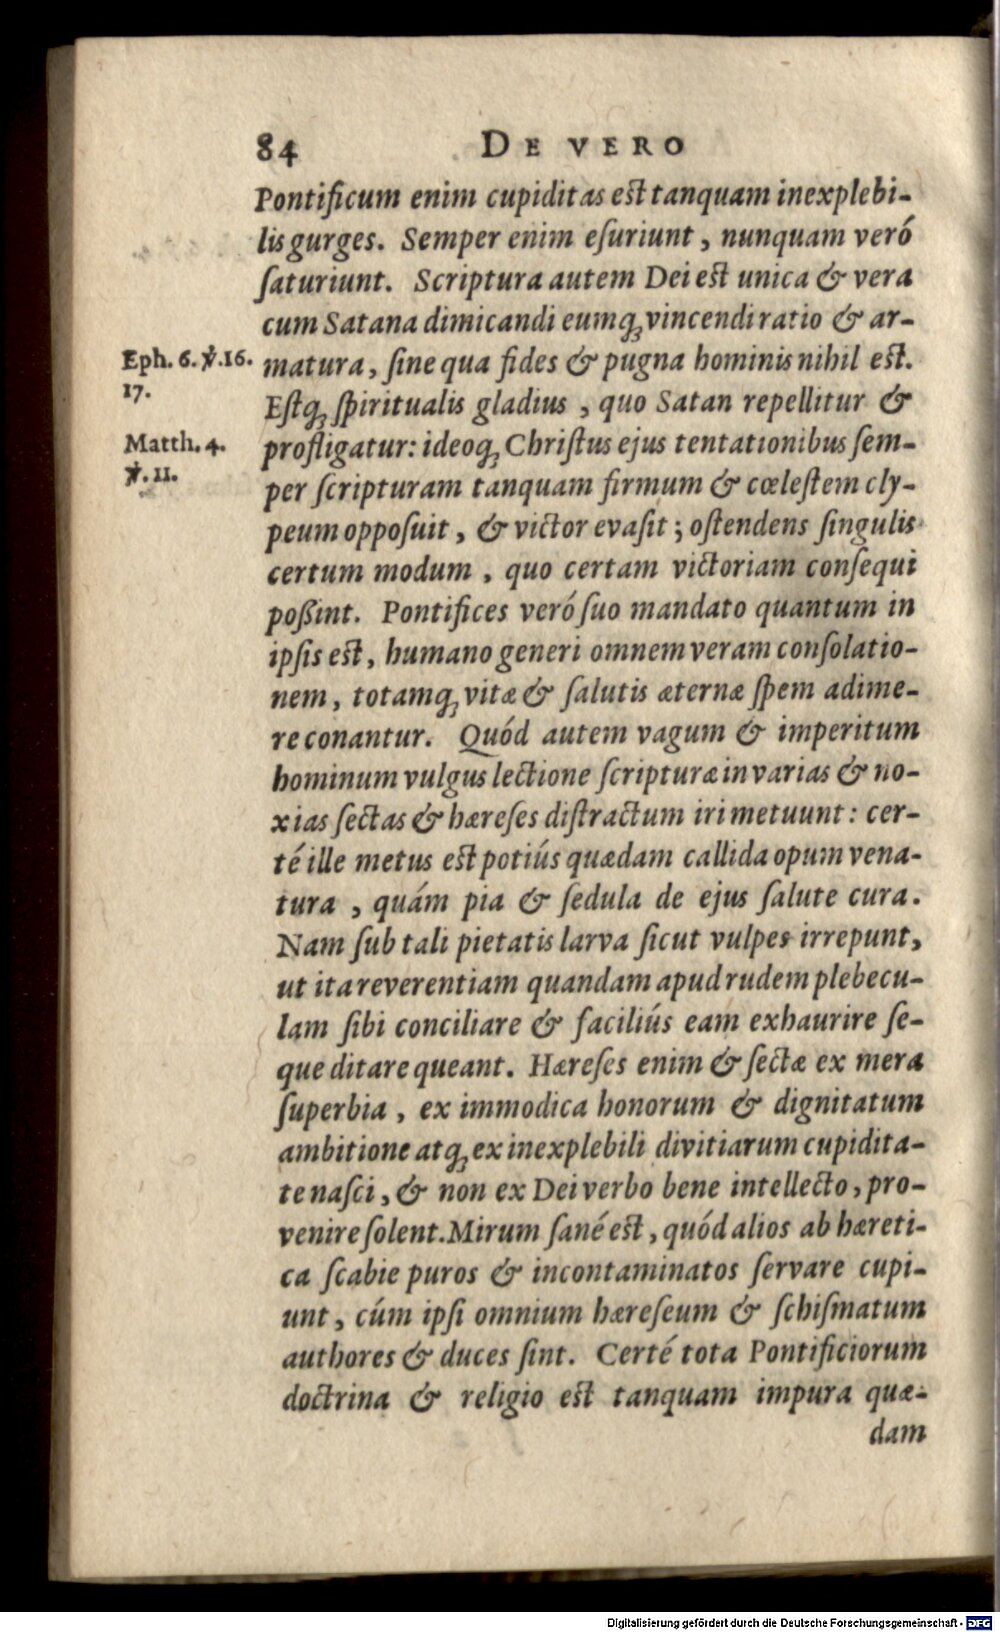 84 DE VERO
Pontificum enim cupiditas est tanquam inexplebi-
lis gurges. Semper enim eſuriunt, nunquam veró
ſaturiunt. Scriptura autem Dei est unica & vera
cum Satana dimicandi eumq́; vincendi ratio & ar-
Eph. 6. ℣.16.
17.
matura, ſine qua fides & pugna hominis nihil est.
Eſtq́; ſpiritualis gladius, quo Satan repellitur &
Matth. 4.
℣. 11.
profligatur: ideoq́; Chriſtus ejus tentationibus ſem-
per ſcripturam tanquam firmum & cœleſtem cly-
peum oppoſuit, & victor evaſit; oſtendens ſingulis
certum modum, quo certam victoriam conſequi
poßint. Pontifices veró ſuo mandato quantum in
ipſis est, humano generi omnem veram conſolatio-
nem, totamq́; vitæ & ſalutis æternæ ſpem adime-
re conantur. Quód autem vagum & imperitum
hominum vulgus lectione ſcripturæ in varias & no-
xias ſectas & hæreſes diſtractum iri metuunt: cer-
té ille metus est potiús quædam callida opum vena-
tura, quám pia & ſedula de ejus ſalute cura.
Nam ſub tali pietatis larva ſicut vulpes irrepunt,
ut ita reverentiam quandam apud rudem plebecu-
lam ſibi conciliare & faciliús eam exhaurire ſe-
que ditare queant. Hæreſes enim & ſectæ ex mera
ſuperbia, ex immodica honorum & dignitatum
ambitione atq́; ex inexplebili divitiarum cupidita-
te naſci, & non ex Dei verbo bene intellecto, pro-
venire ſolent. Mirum ſané est, quód alios ab hæreti-
ca ſcabie puros & incontaminatos ſervare cupi-
unt, cúm ipſi omnium hæreſeum & ſchiſmatum
authores & duces ſint. Certé tota Pontificiorum
doctrina & religio est tanquam impura quæ-
dam
Digitalisierung gefördert durch die Deutsche Forschungsgemeinschaft - DFG